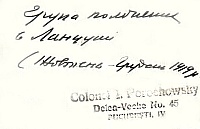 Група полонених
в Ланцуті
(Жовтень-Грудень 1919 р
Colonel I. Porochowsky
Delea-Veche No. 45
BUCUREȘTI, IV